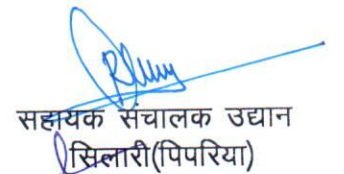 सहायक संचालक उद्यान
सिलारी(पिपरिया)